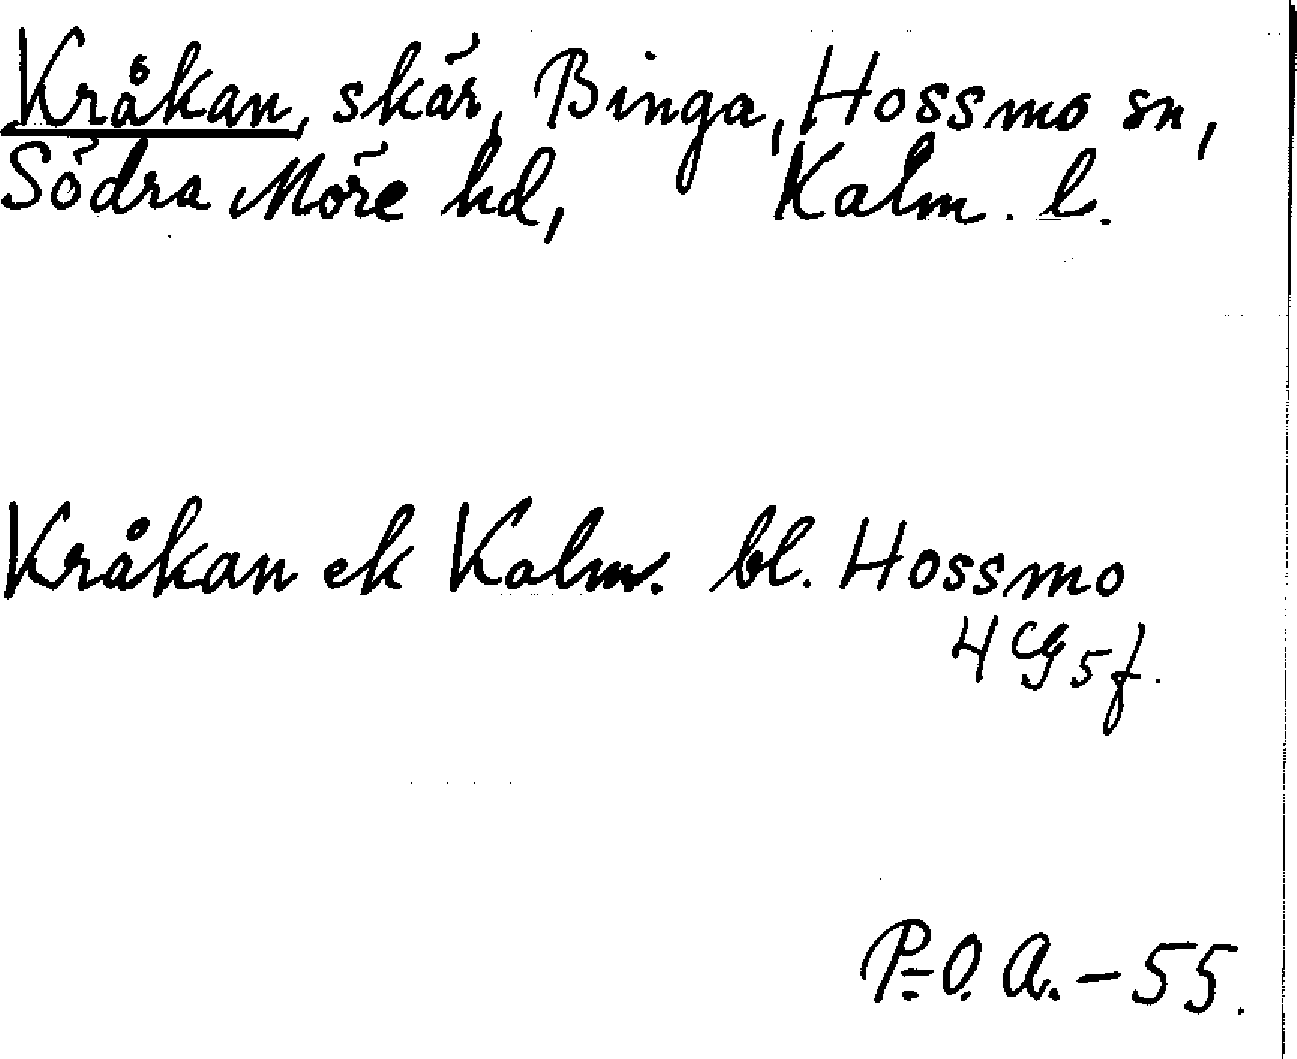 Kråkan, skär, Binga, Hossmo sn,
Södra Möre hd, Kalm. l.
Kråkan ek Kalm. bl. Hossmo
4 G 5 f.
P.-O. A. - 55.